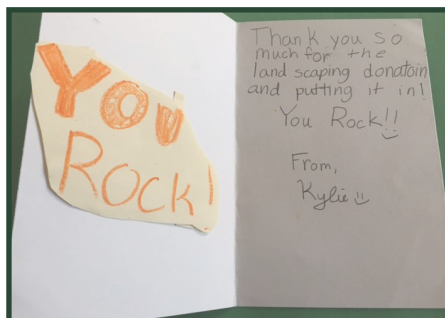 YOU
ROCK!
Thank you so
much for the
land scaping donatoin
and putting it in!
You Rock!!
From,
Kylie